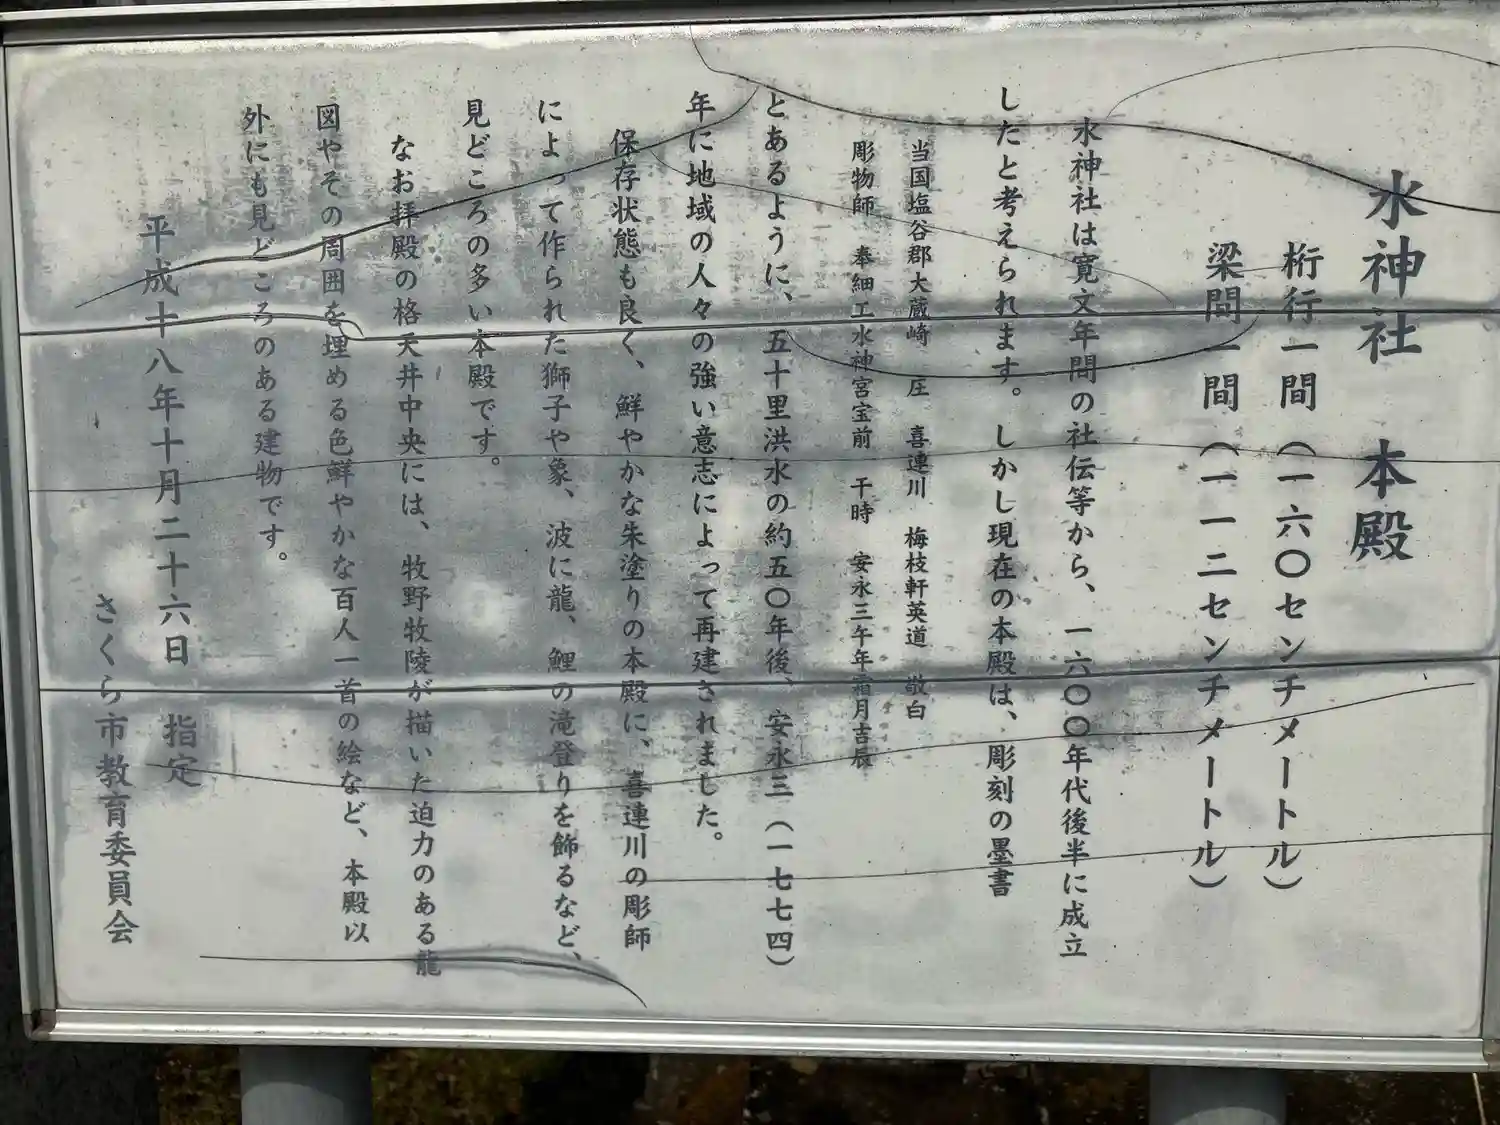 水神社　本殿
桁行一間（一六〇センチメートル）
梁間一間（一一二センチメートル）
水神社は寛文年間の社伝等から、一六〇〇年代後半に成立
したと考えられます。しかし現在の本殿は、彫刻の墨書
当国塩谷郡大蔵崎　庄　喜連川　梅枝軒英道　敬白
彫物師　奉細工水神宮宝前　干時　安永三午年霜月吉辰
とあるように、五十里洪水の約五〇年後、安永三（一七七四）
年に地域の人々の強い意志によって再建されました。
保存状態も良く、鮮やかな朱塗りの本殿に、喜連川の彫師
によって作られた獅子や象、波に龍、鯉の滝登りを飾るなど、
見どころの多い本殿です。
なお拝殿の格天井中央には、牧野牧陵が描いた迫力のある龍
図やその周囲を埋める色鮮やかな百人一首の絵など、本殿以
外にも見どころのある建物です。
平成十八年十月二十六日　指定
さくら市教育委員会